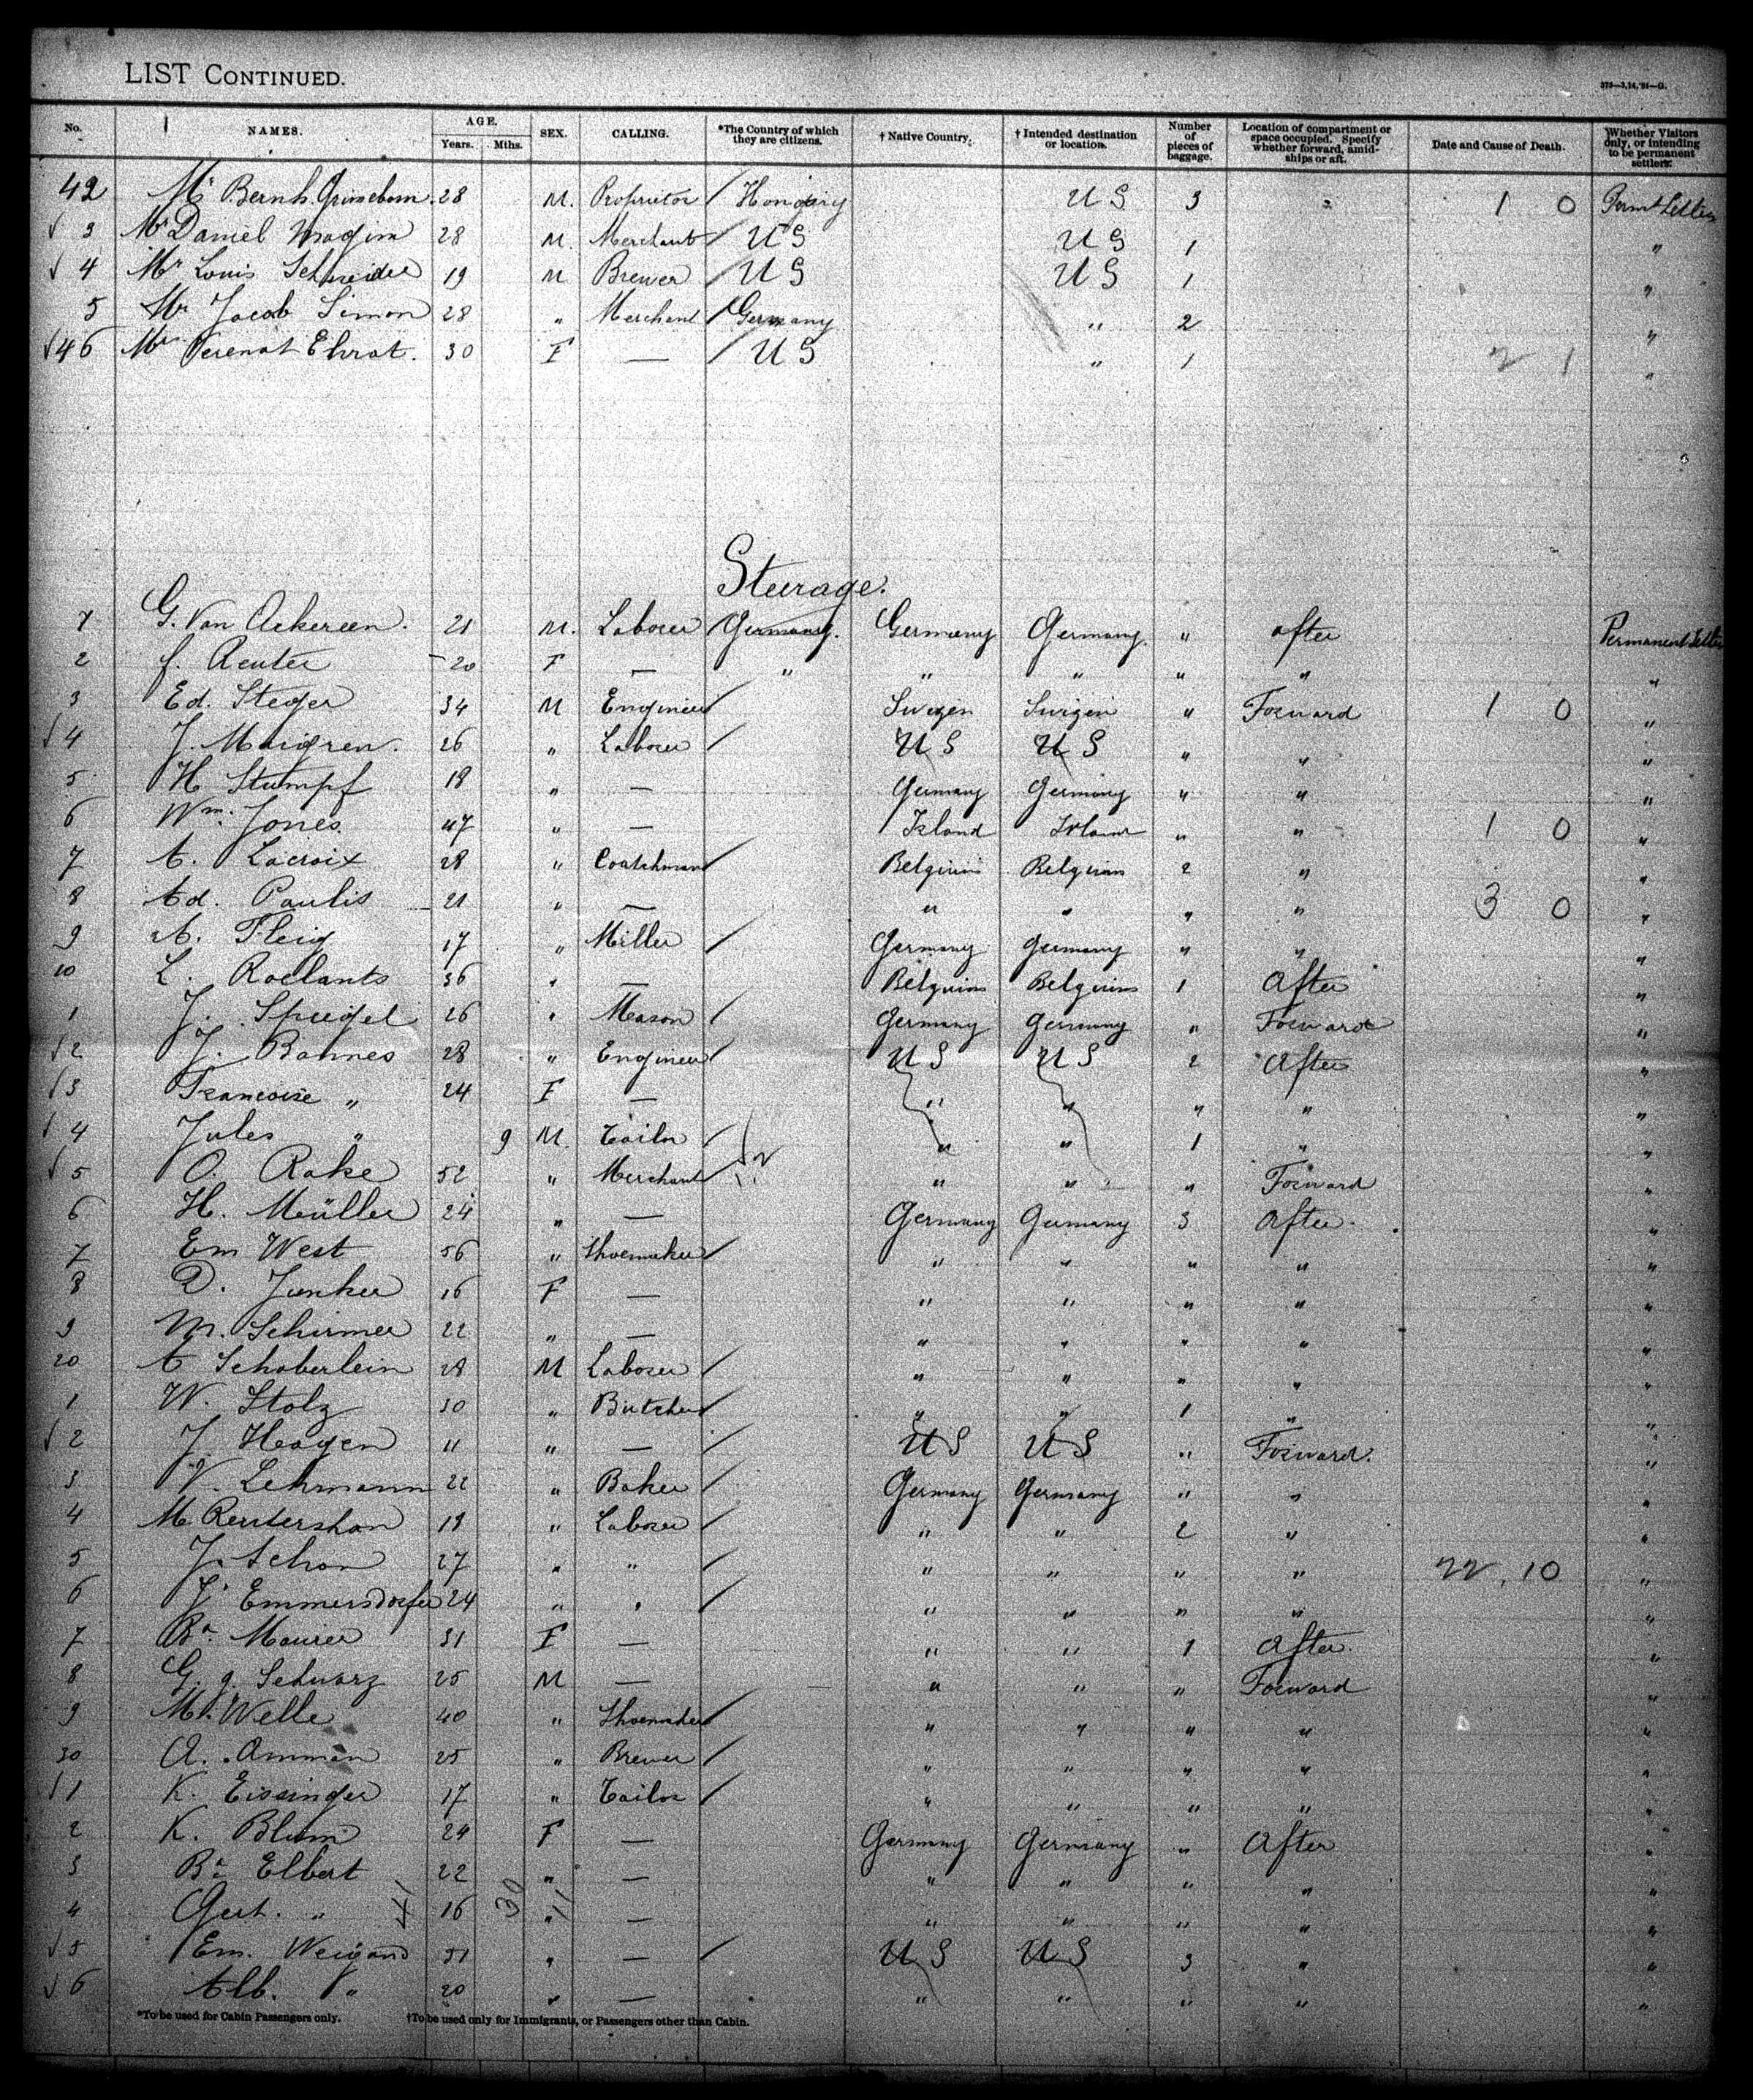 LIST CONTINUED.
No. NAMES. AGE. Years. Mths. SEX. CALLING. *The Country of which they are citizens. † Native Country. † Intended destination or location. Number of pieces of baggage. Location of compartment or space occupied. Specify whether forward, amidships or aft. Date and Cause of Death. Whether Visitors only, or intending to be permanent settlers.
42 Mr Bernh. 28 M. Proprietor Hongary U S 3 1 0
√ 3 Mr Daniel 28 M. Merchant U S U S 1 "
√ 4 Mr Louis Schneider 19 M Brewer U S U S 1 "
5 Mr Jacob Simon 28 " Merchant Germany " 2 "
√ 46 Ehrat. 30 F — U S " 1 2 1 "
Steerage.
G. Van Ackereen. 21 M. Laborer Germany. Germany Germany. " after
2 f. Reuter 20 F — " " " " " "
3 Ed. Steger 34 M Engineer Swizen Swizen " Forward 1 0 "
√ 4 J. 26 " Laborer U S U S " " "
5 H Stumpf 18 " — Germany Germany " " "
6 Wm. Jones. 47 " — " " 1 0 "
7 A. Lacroix 28 " Coatchman Belgium Belgium 2 " "
8 Ad. Paulis 21 " — " " " " 3 0 "
9 A. Fleig 17 " Miller Germany Germany " " "
10 L. Roelants 36 " — Belgium Belgium 1 After "
1 J. Spiegel 26 " Mason Germany Germany " Forward "
√ 2 J. Bannes 28 " Engineer U S U S 2 After "
√ 3 Francoise " 24 F — " " " " "
√ 4 Jules " 9 M. Tailor " " 1 " "
√ 5 O. Rake 52 " Merchant " " " Forward "
6 H. Müller 24 " — Germany Germany 3 After. "
7 Em West 56 " Shoemaker " " " " "
8 D. Junker 16 F — " " " " "
9 M. Schirmer 22 " — " " " " "
20 A Schoberlein 28 M Laborer " " " " "
1 W. Stolz 30 " Butcher " " 1 " "
√ 2 J. Heagen 11 " — U S U S " Forward. "
3 V. Lehmann 22 " Baker Germany Germany " " "
4 M Reutershan 19 " Laborer " " 2 " "
5 J. Schon 27 " " " " " " 22 . 10 "
6 J. Emmersdorfer 24 " " " " " " "
7 Ba. Maurer 31 F — " " 1 After. "
8 G. g. Schwarz 25 M — " " " Forward "
9 M. Welle 40 " Shoemaker " " " " "
30 A. Amman 25 " Brewer " " " " "
√ 1 K. Eissinger 17 " Tailor " " " " "
2 K. Blum 24 F — Germany Germany " After "
3 Ba. Elbert 22 " — " " " " "
4 Gert. " 41 16 30 " 11 — " " " " "
√ 5 Em. Weigand 51 " — U S U S 3 " "
√ 6 Alb. " 20 " — " " " " "
*To be used for Cabin Passengers only. †To be used only for Immigrants, or Passengers other than Cabin.